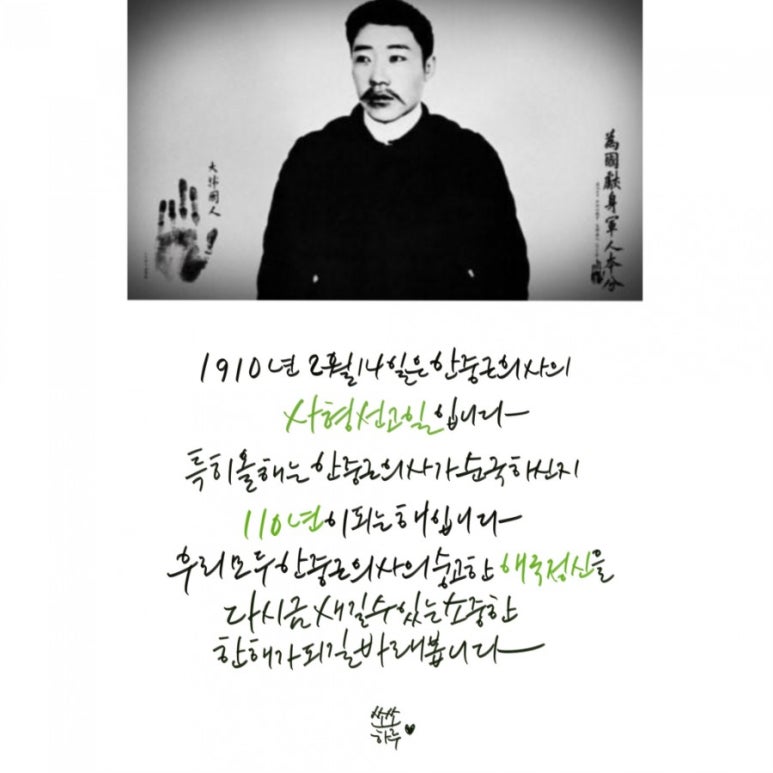 大韓國人
爲國獻身軍人本分
1910년 2월14일은 안중근의사의
사형선고일입니다
특히올해는 안중근의사가 순국하신지
110년이되는해입니다
우리모두 안중근의사의 숭고한 애국정신을
다시금 새길수있는 소중한
한해가되길 바래봅니다
쓰쏘
하루